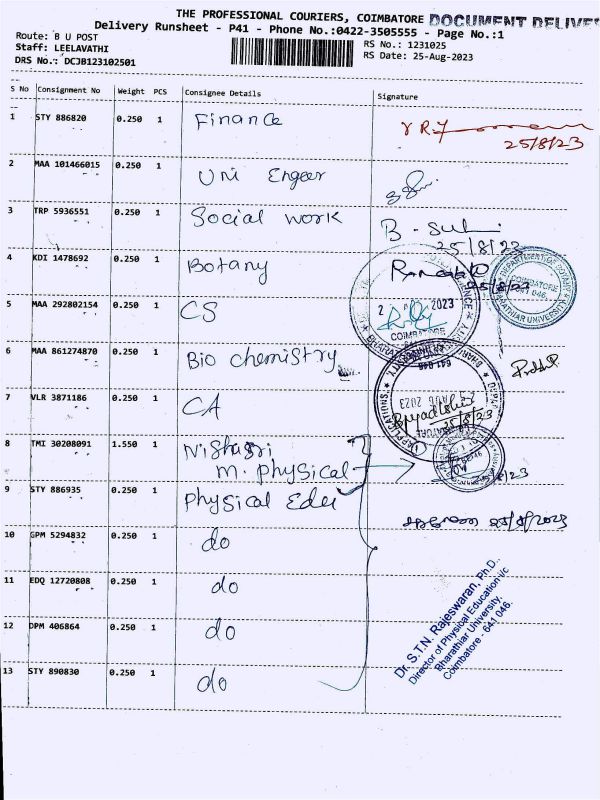 THE PROFESSIONAL COURIERS, COIMBATORE DOCUMENT DELIVE
Delivery Runsheet - P41 - Phone No.:0422-3505555 - Page No.:1
Route: B U POST
Staff: LEELAVATHI
DRS No.: DCJB123102501
RS No.: 1231025
RS Date: 25-Aug-2023
S No Consignment No Weight PCS Consignee Details Signature
1 STY 886820 0.250 1 Finance
25/8/23
2 MAA 101466015 0.250 1 Uni Engeer
3 TRP 5936551 0.250 1 Social work
25/8/23
4 KDI 1478692 0.250 1 Botany
25/8/23
DEPARTMENT OF BOTANY
COIMBATORE
641 046
BHARATHIAR UNIVERSITY
5 MAA 292802154 0.250 1 CS
2023
COIMBATORE
6 MAA 861274870 0.250 1 Bio chemistry
641 046
7 VLR 3871186 0.250 1 CA
AUG 2023
25/8/23
8 TMI 30208091 1.550 1 Nishasri
m. physical
9 STY 886935 0.250 1 Physical Edu
25/8/2023
10 GPM 5294832 0.250 1 do
11 EDQ 12720808 0.250 1 do
12 DPM 406864 0.250 1 do
13 STY 890830 0.250 1 do
Dr. S.T.N. Rajeswaran, Ph.D.,
Director of Physical Education i/c
Bharathiar University,
Coimbatore - 641 046.